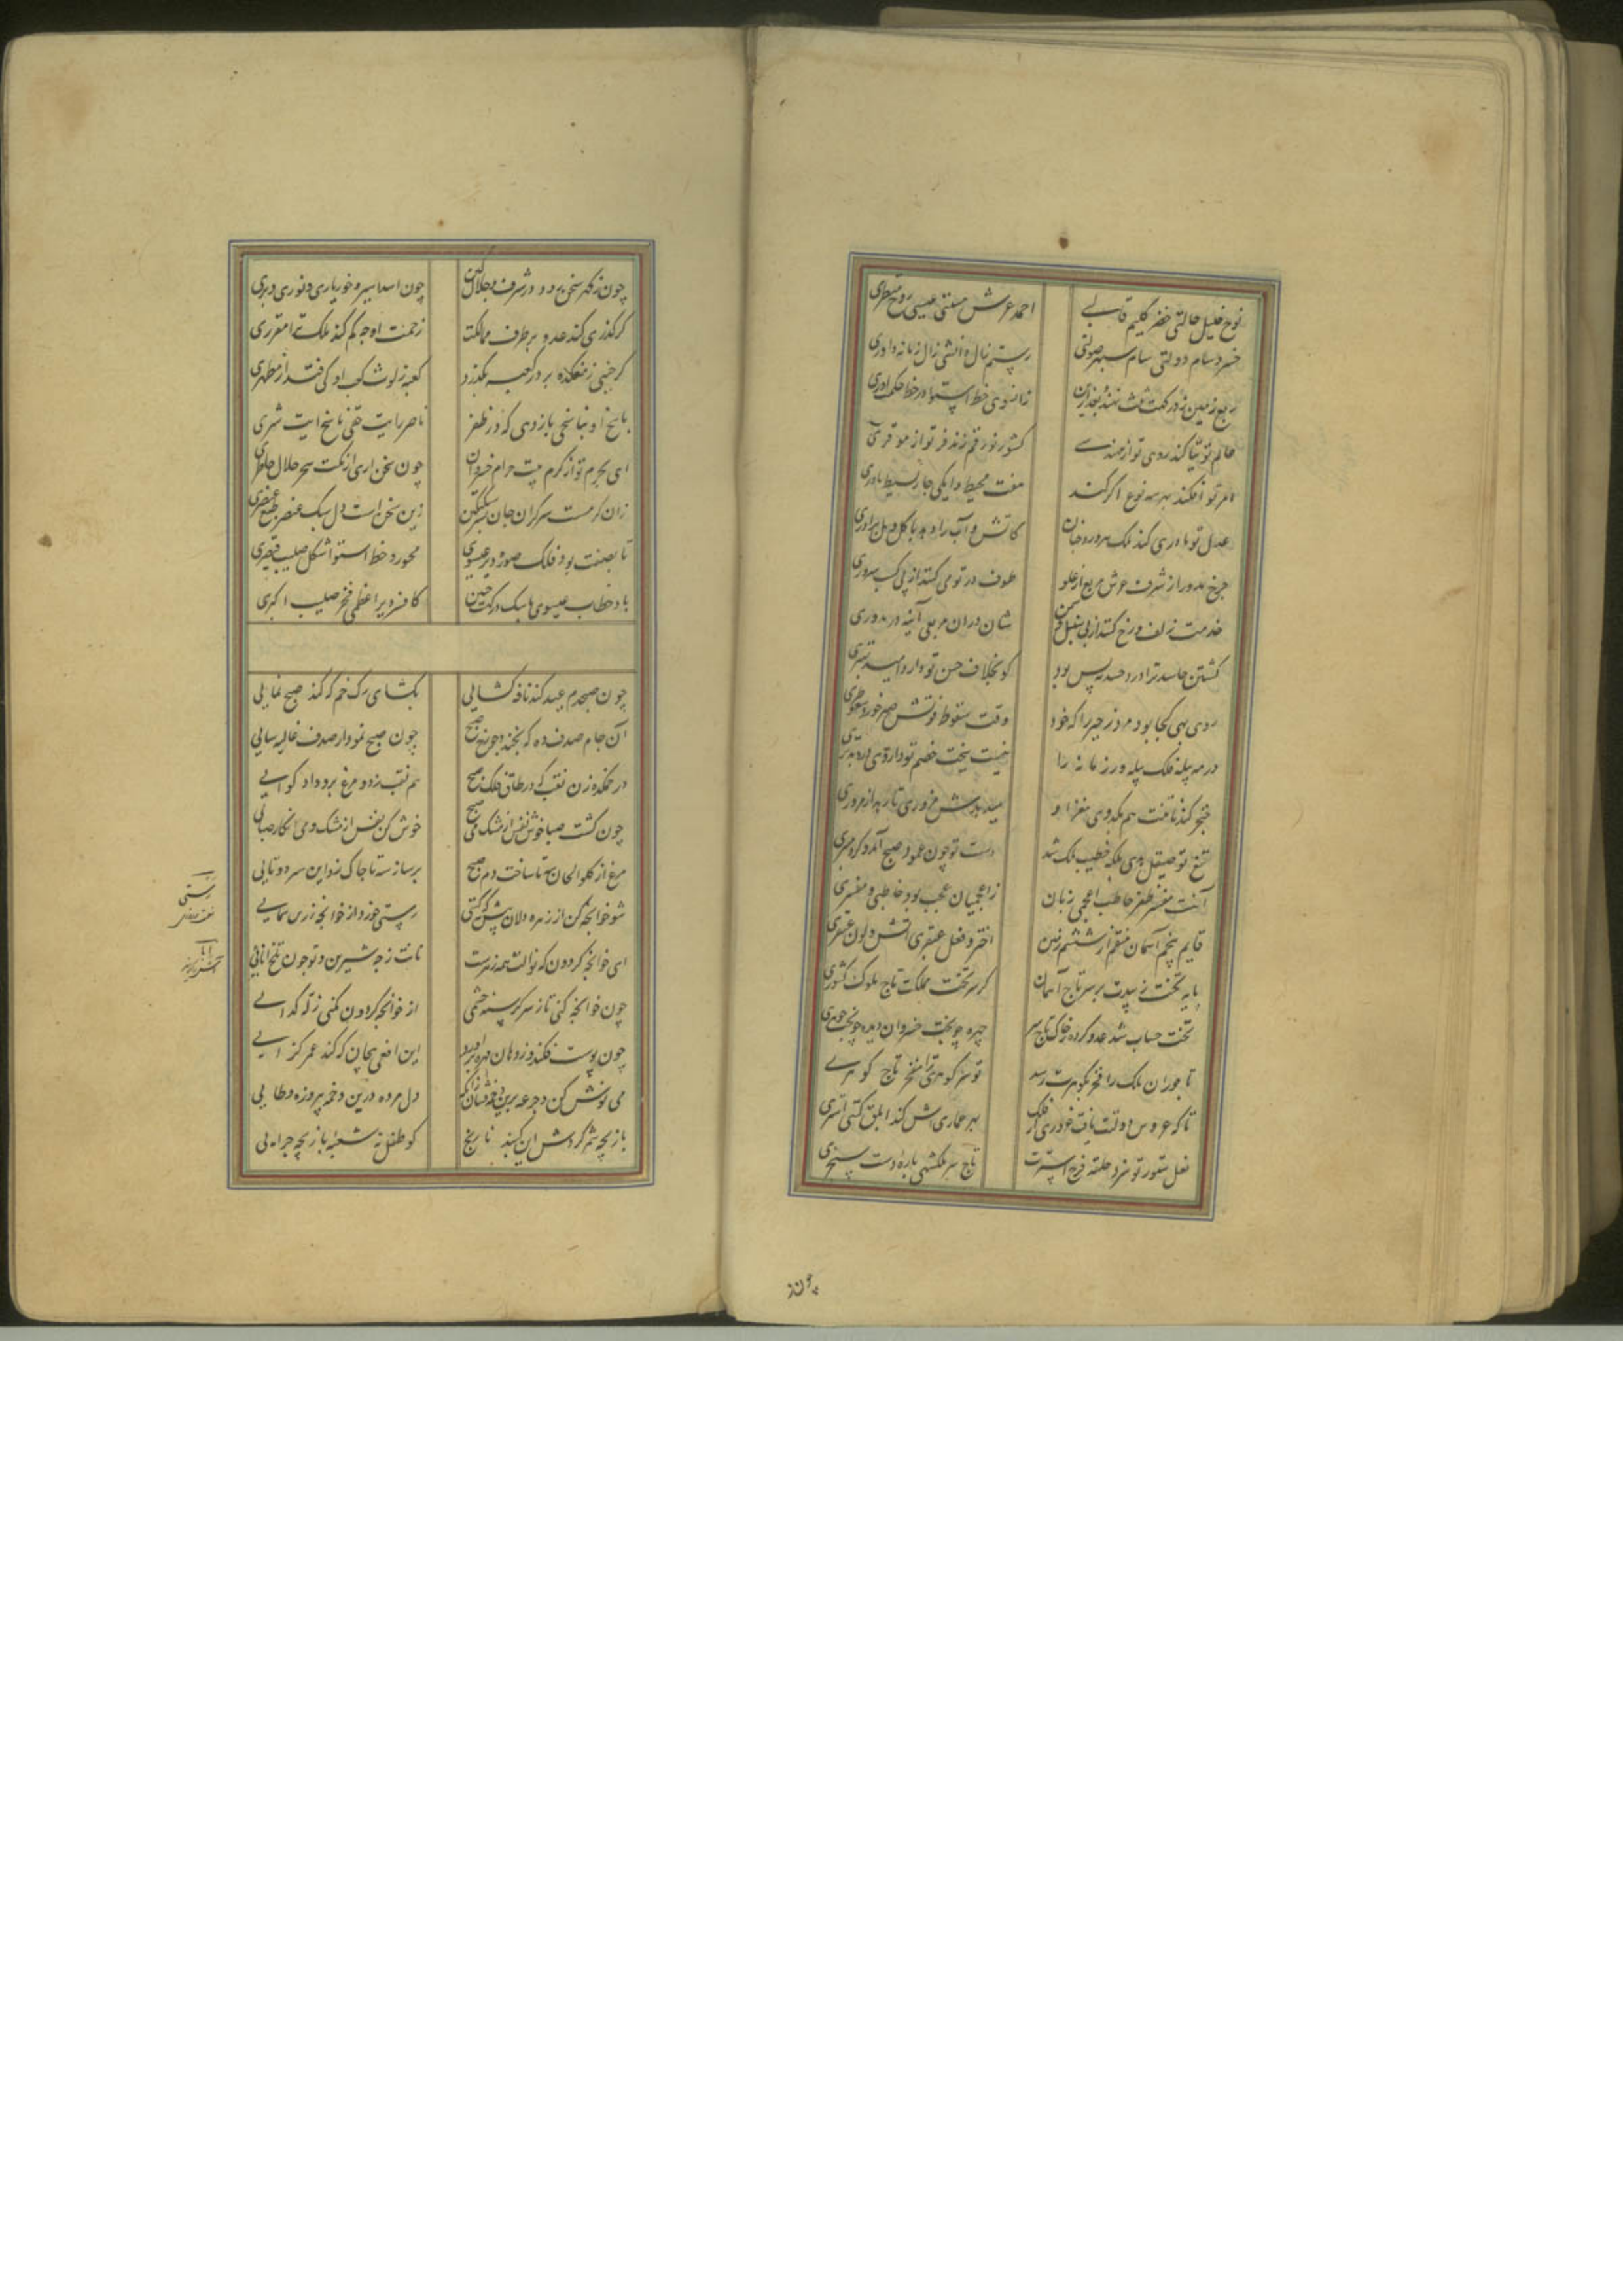 نوح خلیل حالتی خضر کلیم قالبی
احمد عرش مسندی عیسی روح منظری
خسرو سام دولتی سام سپهر صولتی
رستم زال دانشی زال زمانه داوری
ربع زمین
زانسوی خط استوا در خط حکمت آوری
کند روی تو از
کشور نور
امر تو افکند بهر سه نوع اگر کند
هفت محیط دایکی چار بسیط مادری
عدل تو مادری کند ملک
کاتش و آب را دهد با گل و مل برادری
چرخ مدور از شرف عرش مربع از علو
طوف در تو می کنند از پی کسب سروری
خدمت زلف و رخ کنند از پی سنبل و سمن
شان در ان مربعی آینه در مدوری
کشتن حاسد ترا درد حسد نه بس بود
کو بخلاف حسن تو دارد امید
روی بهی کجا بود مرد زحیر را که خود
وقت سقوط قوتش صبر خورد
در مه پیله فلک پیله ور زمانه را
نیست بخت خصم تو داروی درد مدبری
خنجر گندنا تنت هم بکدوی مغز او
میدهدش مزوری تا رهد از مزوری
تیغ تو صیقل هدی بلکه خطیب ملک شد
دست تو چون عمود صبح آمد و کرد منبری
آنت مفسر ظفر خاطب اعجمی زبان
زاعجمیان عجب بود خاطبی و مفسری
قایم پنجم آسمان منتقم از ششم زمین
اختر و فعل عبقری آتش و لون عبقری
پایه تخت ز سدت بر سر تاج آسمان
گر سر تخت مملکت تاج ملوک کشوری
تخت حساب شد عدو کرده ز خاک تاج سر
چهره چو تخت خسروان دیده چو تخت جوهری
تاجوران ملک را فخر بگوهرت رسد
تو سر گوهری ترا مفخر تاج گوهری
تا که عروس دولتت یافت عماری از فلک
بهر عماریش کند ابلق گیتی استری
نعل ستور تو سزد حلقه فرج استرت
تاج سر ملکشهی یاره دست سنجری
چون ز گهر سخن رود در شرف و جلال و کین
چون اسد اسیر و خور باری و نوری و بری
گر گذری کند عدو بر طرف ممالکت
زحمت او چه کم کند ملکت تو مقرری
گر جنبی ز مفکده بر در کعبه بگذرد
کعبه ز لوث کعب او کی فتد از مطهری
پاسخ
ناصر رایت حقی ناسخ آیت شری
ای بحرم تو از کرم بیت حرام خسروان
چون سخن آری از نکت سحر حلال خاطری
زان کرمست سرگران جان سبکتگین
زین سخن است دل سبک عنصر طبع عنصری
تا بصفت بود فلک صورت دیر عیسوی
محور و خط استوا شکل صلیب قیصری
باد خطاب عیسوی با سگ درگهت چنین
کافسر دیر اعظمی فخر صلیب اکبری
چون صبحدم عید کند نافه گشایی
بگشای رگ خم که کند صبح نمایی
آن جام صدف ده که بخندد چو رخ صبح
چون صبح نمودار صدف غالیه سایی
در خمکده زن نقب که در طاق فلک صبح
هم نقب زد و مرغ برو داد گوایی
چون گشت صبا خوش نفس از مشک و می صبح
خوش کن نفس از مشک و می انکار صبایی
مرغ از گلو الحان سه تا ساخت دم صبح
بر ساز سه تا چاک زن این سر دو تایی
شو خوانچه کن از زهره دلان پیش که گیتی
رستی خورد از خوانچه زرین سمایی
ای خوانچه گردون که نوالت همه زهرست
نانت ز چه شیرین و تو چون تلخ ابایی
چون خوانچه کنی تا ز سر گرسنه چشمی
از خوانچه گردون نکنی زله گدایی
چون پوست فکند و ز دهان مهره برآورد
این افعی پیچان که کند عمر گزایی
می نوش کن و جرعه برین دخمه فشان زانک
دل مرده درین دخمه پیروزه وطایی
بازیچه شمر گردش این گنبد نارنج
گو طفل نه شعبه بازیچه چرایی
رستی
چون ز